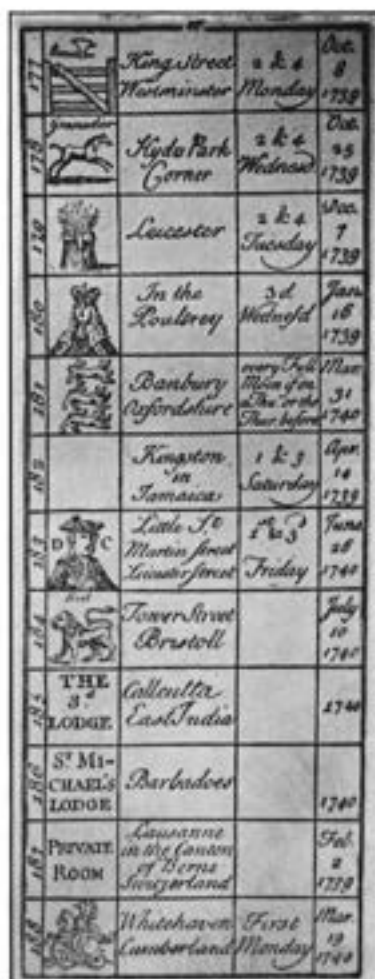 177
King Street
Westminster
2 & 4
Monday
Oct.
8
1739
178
Grenadier
Hyde Park
Corner
2 & 4
Wednesd
Oct.
25
1739
179
Leicester
2 & 4
Tuesday
Dec.
7
1739
180
In the
Poultrey
3d
Wednesd
Jan
16
1739
181
Banbury
Oxfordshire
every Full
Moon if on
a Thu. or the
Thur. before
Mar.
31
1740
182
Kingston
in
Jamaica
1 & 3
Saturday
Apr.
14
1739
183
D C
Little St.
Martin street
Leicester street
1st & 3d
Friday
June
26
1740
184
Red
Tower Street
Bristoll
July
10
1740
185
THE
3d
LODGE
Callcutta
East India
1740
186
ST MI-
CHAEL'S
LODGE
Barbadoes
1740
187
PRIVATE
ROOM
Lausanne
in the Canton
of Berne
Switzerland
Feb.
2
1739
188
Whitehaven
Cumberland
First
Monday
Mar.
19
1740